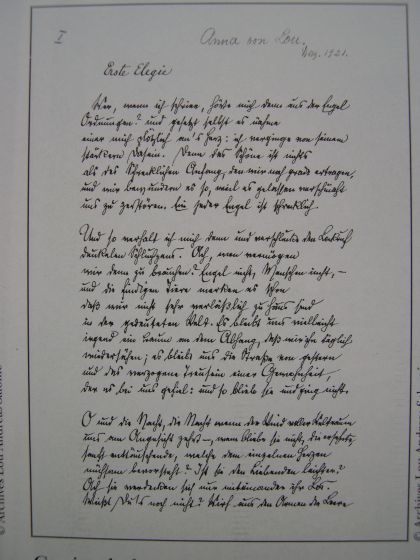 I
Anna von Lou.
1921.
Erste Elegie
Wer, wenn ich schriee, hörte mich denn aus der Engel
Ordnungen? und gesetzt selbst es nähme
einer mich plötzlich an's Herz: ich verginge von seinem
stärkern Dasein. Denn das Schöne ist nichts
als des Schrecklichen Anfang, den wir noch grade ertragen,
und wir bewundern es so, weil es gelassen verschmäht
uns zu zerstören. Ein jeder Engel ist schrecklich.
Und so verhalt ich mich denn und verschlucke den Lockruf
dunkelen Schluchzens. Ach, wen vermögen
wir denn zu brauchen? Engel nicht, Menschen nicht, –
und die findigen Tiere merken es schon
daß wir nicht sehr verläßlich zu Haus sind
in der gedeuteten Welt. Es bleibt uns vielleicht
irgend ein Baum an dem Abhang, daß wir ihn täglich
wiedersähen; es bleibt uns die Straße von gestern
und das verzogene Treusein einer Gewohnheit,
der es bei uns gefiel: und so blieb sie und ging nicht.
O und die Nacht, die Nacht wenn der Wind voller Weltraum
uns am Angesicht zehrt –, wem bliebe sie nicht, die ersehnte,
sanft enttäuschende, welche dem einzelnen Herzen
mühsam bevorsteht? Ist sie den Liebenden leichter?
Ach sie verdecken sich nur miteinander ihr Los.
Weißt Du's noch nicht? Wirf aus den Armen die Leere
© Archives Lou Andreas Salomé
© Archives Lou Andreas Salomé